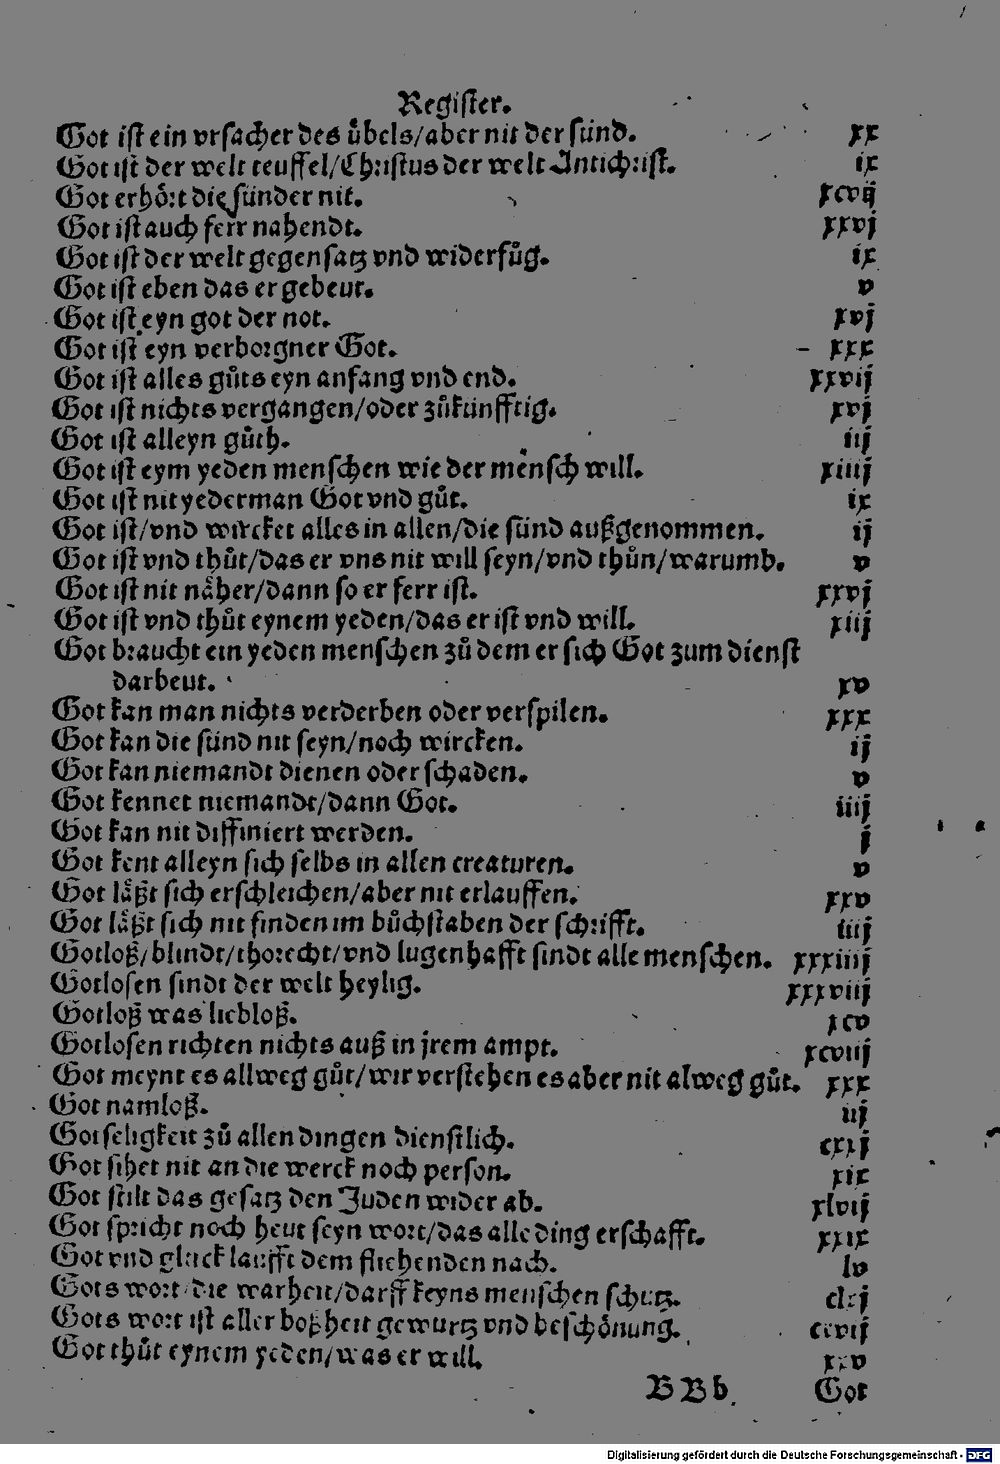 Register.
Got ist ein vrsacher des übels/aber nit der sünd. xx
Got ist der welt teuffel/Christus der welt Antichrist. ix
Got erhört die sünder nit. xcvij
Got ist auch ferr nahendt. xxvj
Got ist der welt gegensatz vnd widerfůg. ix
Got ist eben das er gebeut. v
Got ist eyn got der not. xvj
Got ist eyn verborgner Got. xxx
Got ist alles gůts eyn anfang vnd end. xxvij
Got ist nichts vergangen/oder zůkünfftig. xvj
Got ist alleyn gůth. iij
Got ist eym yeden menschen wie der mensch will. xiiij
Got ist nit yederman Got vnd gůt. ix
Got ist/vnd wircket alles in allen/die sünd außgenommen. ij
Got ist vnd thůt/das er vns nit will seyn/vnd thůn/warumb. v
Got ist nit näher/dann so er ferr ist. xxvj
Got ist vnd thůt eynem yeden/das er ist vnd will. xiij
Got braucht ein yeden menschen zů dem er sich Got zum dienst
darbeut. xv
Got kan man nichts verderben oder verspilen. xxx
Got kan die sünd nit seyn/noch wircken. ij
Got kan niemandt dienen oder schaden. v
Got kennet niemandt/dann Got. iiij
Got kan nit diffiniert werden. j
Got kent alleyn sich selbs in allen creaturen. v
Got läßt sich erschleichen/aber nit erlauffen. xxv
Got läßt sich nit finden im bůchstaben der schrifft. iiij
Gotloß/blindt/thorecht/vnd lugenhafft sindt alle menschen. xxxiiij
Gotlosen sindt der welt heylig. xxxviij
Gotloß was liebloß. xcv
Gotlosen richten nichts auß in jrem ampt. xcviij
Got meynt es allweg gůt/wir verstehen es aber nit alweg gůt. xxx
Got namloß. iij
Gotseligkeit zů allen dingen dienstlich. cxxj
Got sihet nit an die werck noch person. xix
Got stilt das gesatz den Juden wider ab. xlvij
Got spricht noch heut seyn wort/das alle ding erschafft. xxix
Got vnd glück laufft dem fliehenden nach. lv
Gots wort die warheit/darff keyns menschen schutz.
Gots wort ist aller boßheit gewurtz vnd beschönung.
Got thůt eynem yeden/was er will. xxv
BBb Got
Digitalisierung gefördert durch die Deutsche Forschungsgemeinschaft - DFG